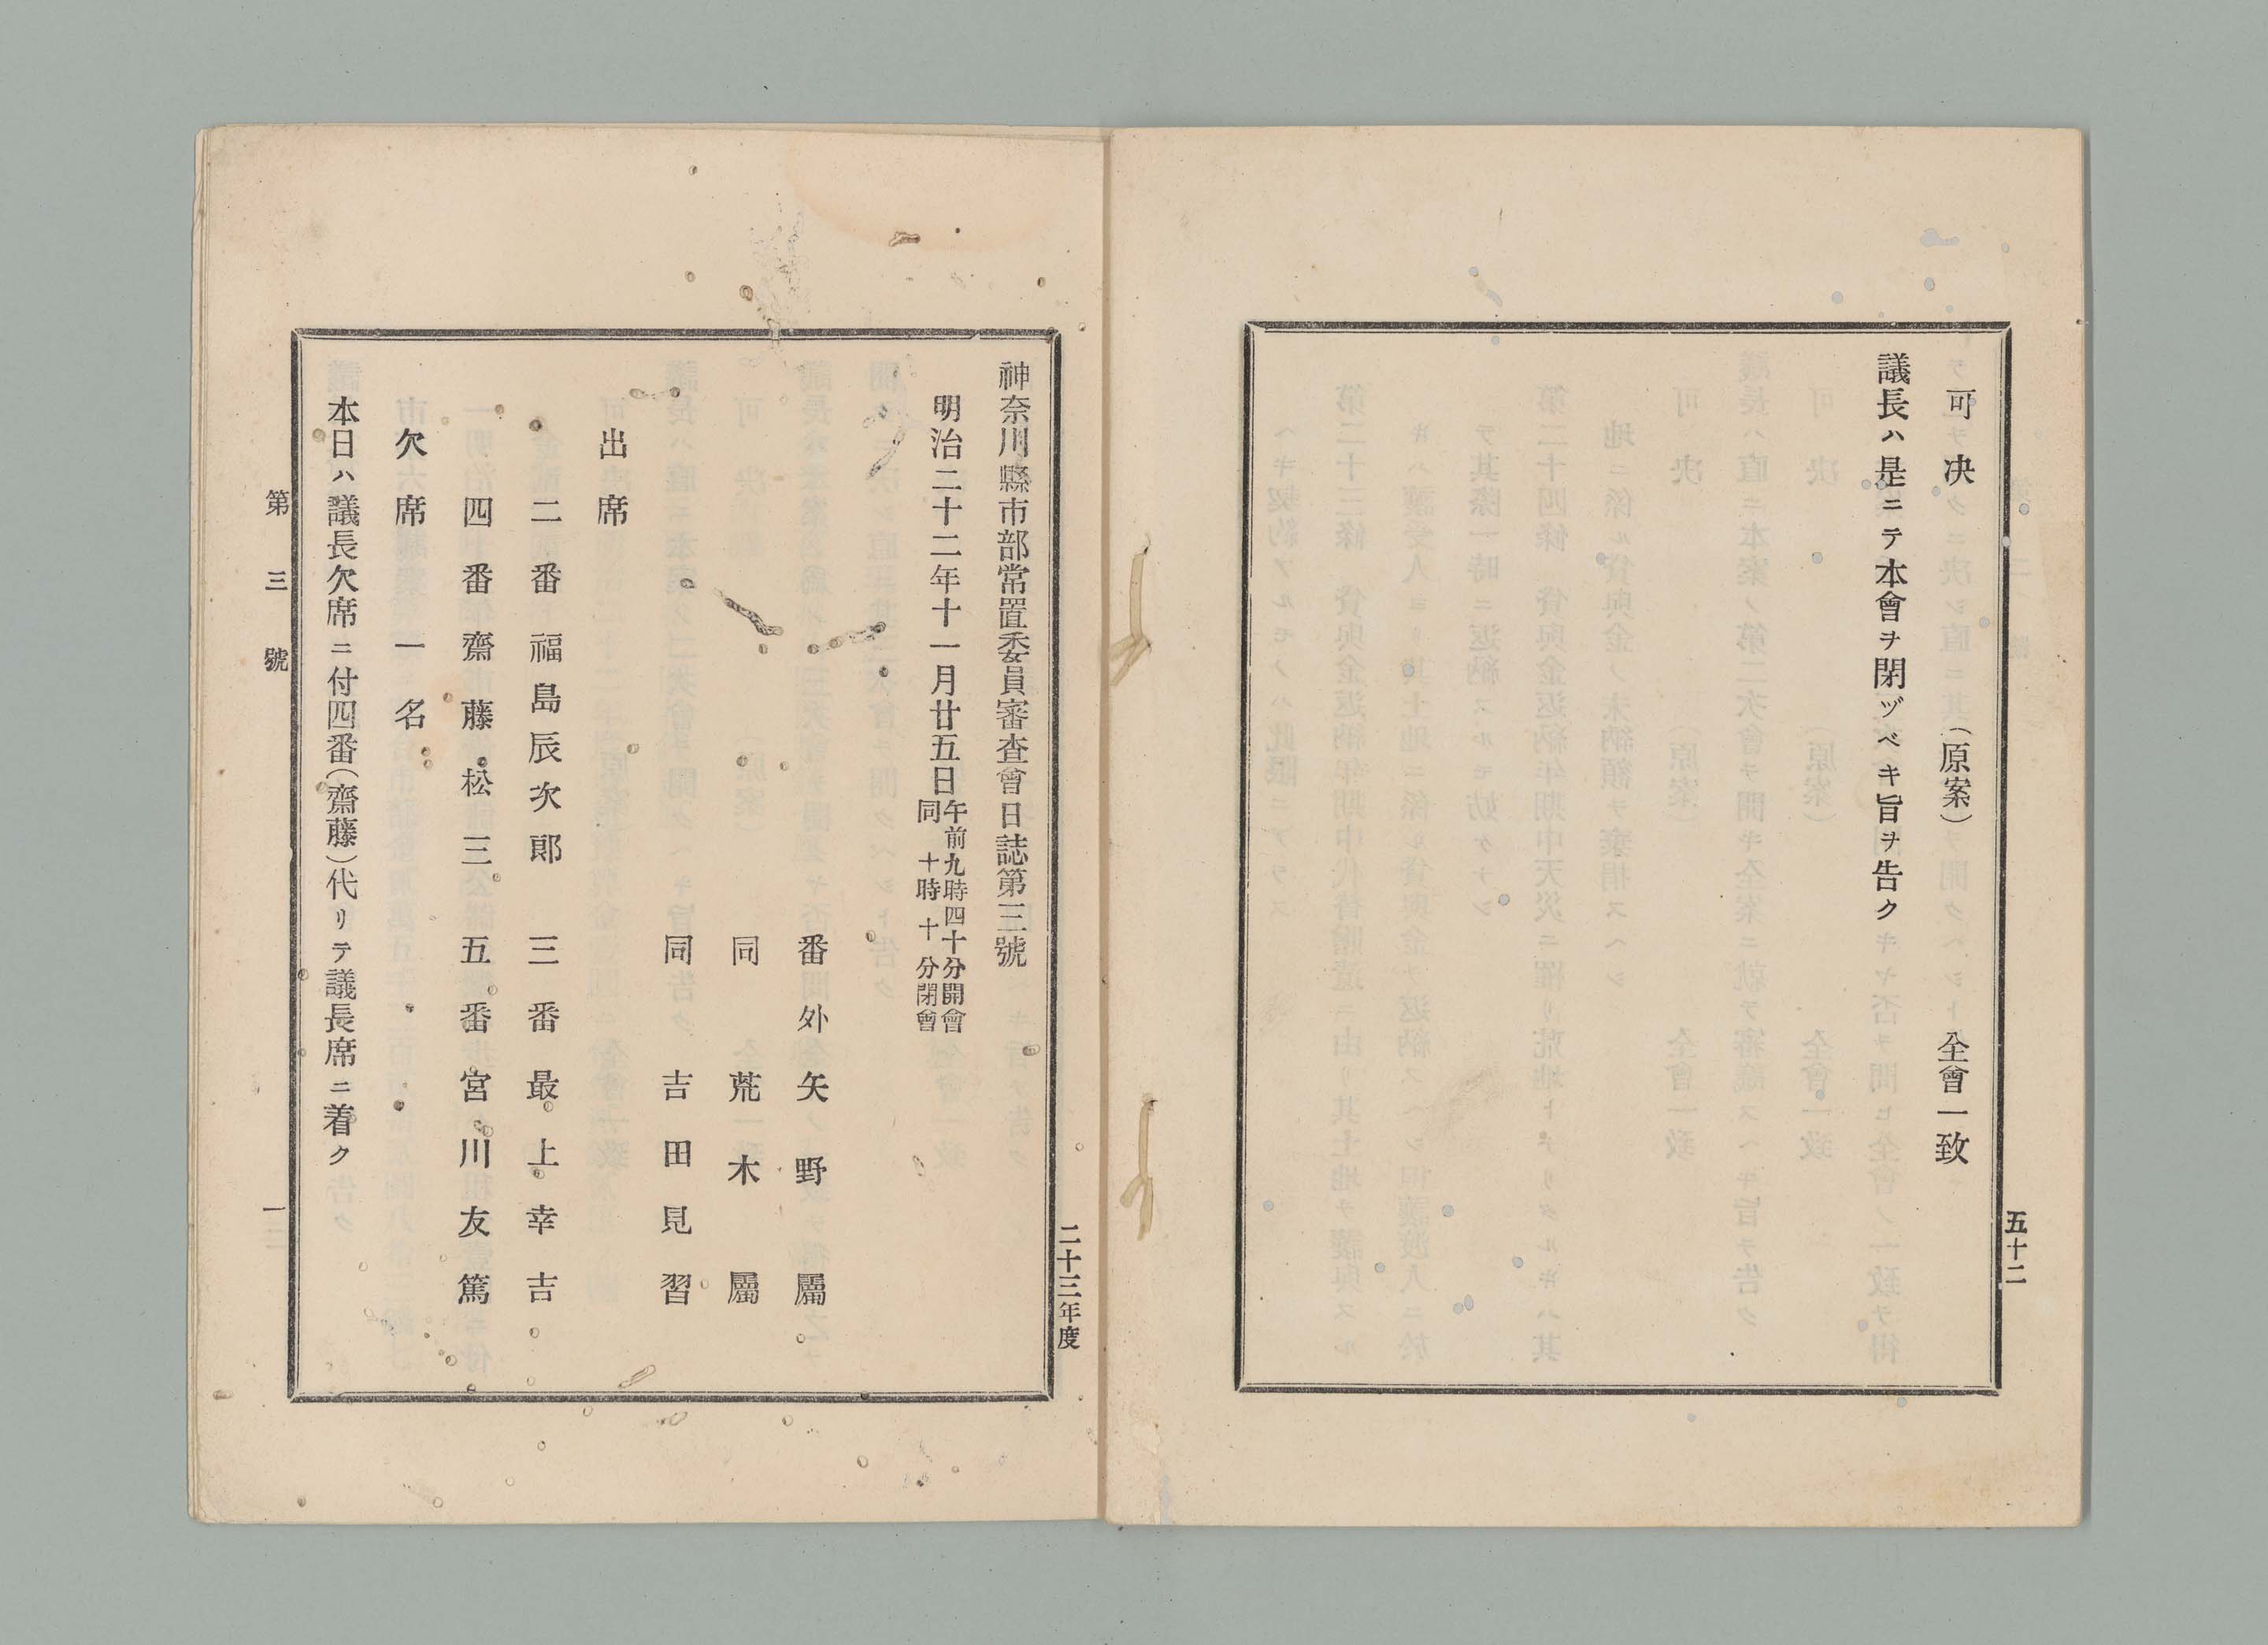 可决　（原案）　全會一致
議長ハ是ニテ本會ヲ閉ヅベキ旨ヲ告ク
五十二
二十三年度
神奈川縣市部常置委員審査會日誌第三號
明治二十二年十一月廿五日午前九時四十分開會
同　十時　十分閉會
番外矢野屬
同荒木屬
同吉田見習
出席
二番福島辰次郎　三番最上幸吉
四番齋藤松三　五番宮川友篤
欠席一名
本日ハ議長欠席ニ付四番（齋藤）代リテ議長席ニ着ク
第三號
一